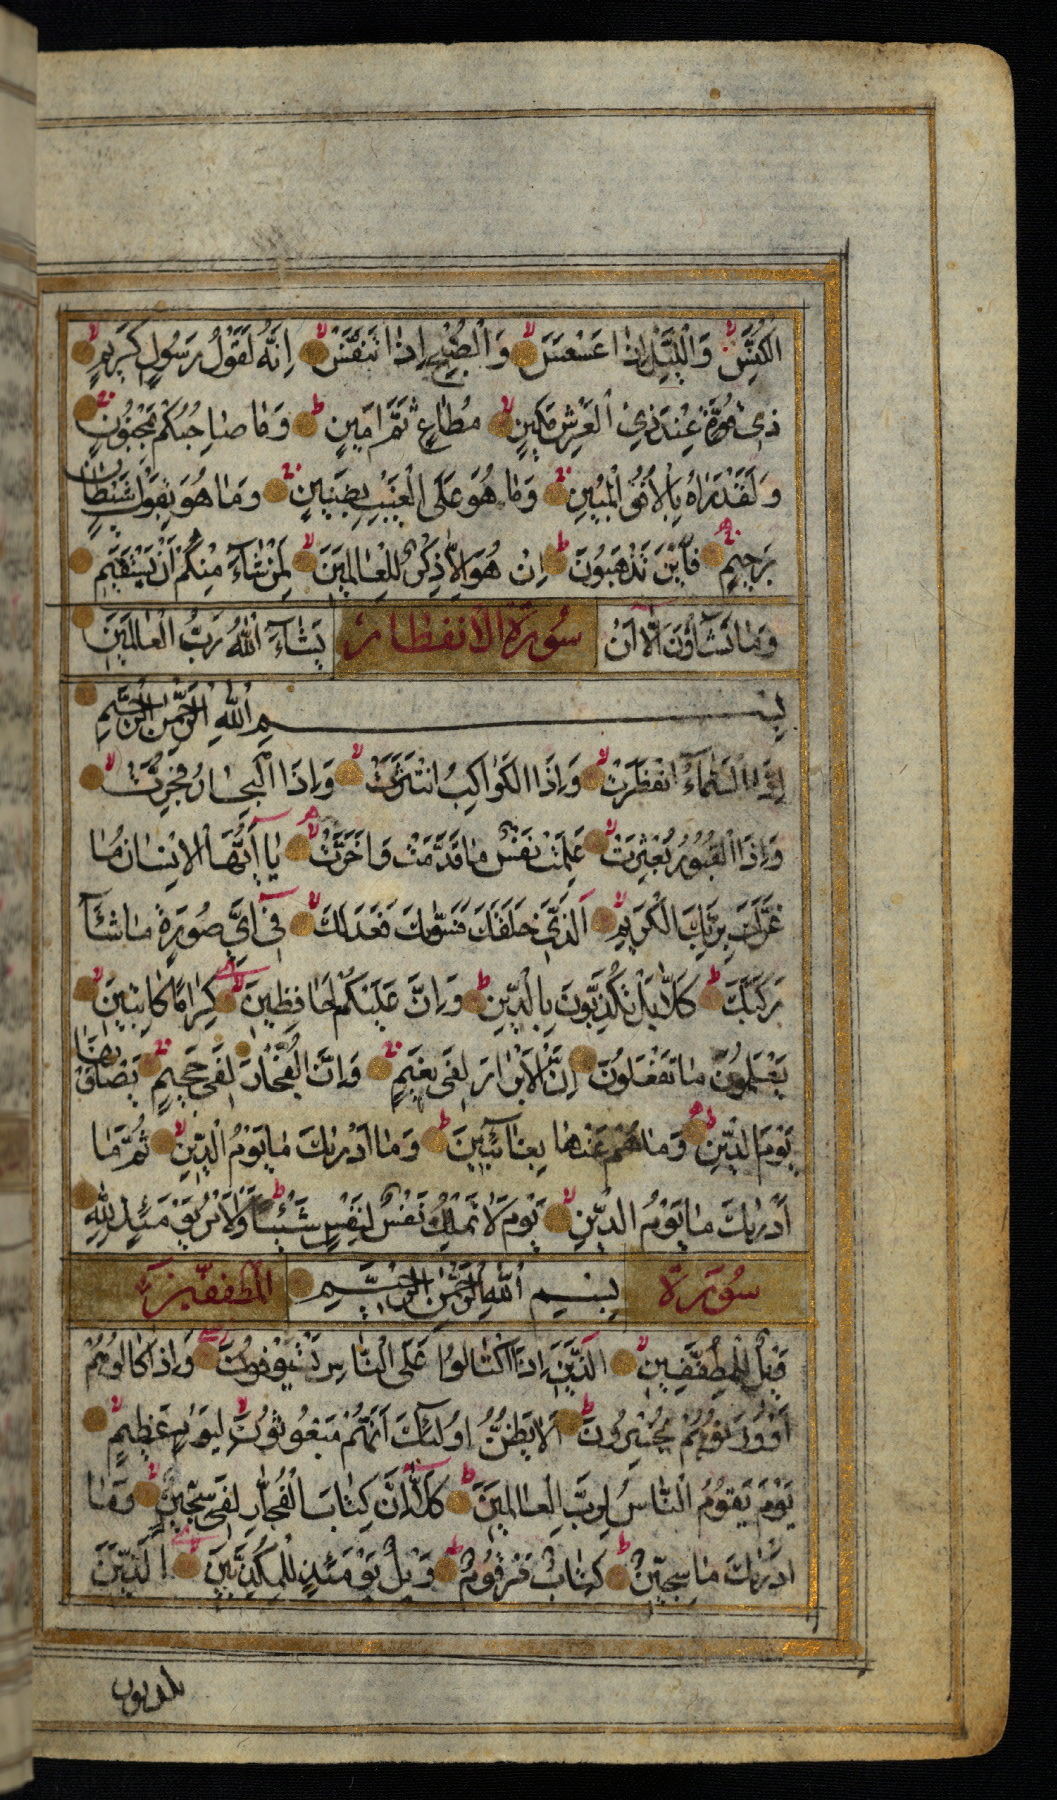 الْكُنَّسِ وَالَّيْلِ اِذَا عَسْعَسَ وَالصُّبْحِ اِذَا تَنَفَّسَ اِنَّهُ لَقَوْلُ رَسُولٍ كَرِيمٍ
ذِي قُوَّةٍ عِنْدَ ذِي الْعَرْشِ مَكِينٍ مُطَاعٍ ثَمَّ اَمِينٍ وَمَا صَاحِبُكُمْ بِمَجْنُونٍ
وَلَقَدْ رَاٰهُ بِالْاُفُقِ الْمُبِينِ وَمَا هُوَ عَلَى الْغَيْبِ بِضَنِينٍ وَمَا هُوَ بِقَوْلِ شَيْطَانٍ
رَجِيمٍ فَاَيْنَ تَذْهَبُونَ اِنْ هُوَ اِلَّا ذِكْرٌ لِلْعَالَمِينَ لِمَنْ شَاءَ مِنْكُمْ اَنْ يَسْتَقِيمَ
وَمَا تَشَاؤُنَ اِلَّا اَنْ سُورَةُ الْاِنْفِطَارِ يَشَاءَ اللّٰهُ رَبُّ الْعَالَمِينَ
بِسْمِ اللّٰهِ الرَّحْمٰنِ الرَّحِيمِ
اِذَا السَّمَاءُ انْفَطَرَتْ وَاِذَا الْكَوَاكِبُ انْتَثَرَتْ وَاِذَا الْبِحَارُ فُجِّرَتْ
وَاِذَا الْقُبُورُ بُعْثِرَتْ عَلِمَتْ نَفْسٌ مَا قَدَّمَتْ وَاَخَّرَتْ يَا اَيُّهَا الْاِنْسَانُ مَا
غَرَّكَ بِرَبِّكَ الْكَرِيمِ اَلَّذِي خَلَقَكَ فَسَوّٰيكَ فَعَدَلَكَ فِي اَيِّ صُورَةٍ مَا شَاءَ
رَكَّبَكَ كَلَّا بَلْ تُكَذِّبُونَ بِالدِّينِ وَاِنَّ عَلَيْكُمْ لَحَافِظِينَ كِرَامًا كَاتِبِينَ
يَعْلَمُونَ مَا تَفْعَلُونَ اِنَّ الْاَبْرَارَ لَفِي نَعِيمٍ وَاِنَّ الْفُجَّارَ لَفِي جَحِيمٍ يَصْلَوْنَهَا
يَوْمَ الدِّينِ وَمَا هُمْ عَنْهَا بِغَائِبِينَ وَمَا اَدْرٰيكَ مَا يَوْمُ الدِّينِ ثُمَّ مَا
اَدْرٰيكَ مَا يَوْمُ الدِّينِ يَوْمَ لَا تَمْلِكُ نَفْسٌ لِنَفْسٍ شَيْئًا وَالْاَمْرُ يَوْمَئِذٍ لِلّٰهِ
سُورَةُ بِسْمِ اللّٰهِ الرَّحْمٰنِ الرَّحِيمِ الْمُطَفِّفِينَ
وَيْلٌ لِلْمُطَفِّفِينَ اَلَّذِينَ اِذَا اكْتَالُوا عَلَى النَّاسِ يَسْتَوْفُونَ وَاِذَا كَالُوهُمْ
اَوْ وَزَنُوهُمْ يُخْسِرُونَ اَلَا يَظُنُّ اُولٰئِكَ اَنَّهُمْ مَبْعُوثُونَ لِيَوْمٍ عَظِيمٍ
يَوْمَ يَقُومُ النَّاسُ لِرَبِّ الْعَالَمِينَ كَلَّا اِنَّ كِتَابَ الْفُجَّارِ لَفِي سِجِّينٍ وَمَا
اَدْرٰيكَ مَا سِجِّينٌ كِتَابٌ مَرْقُومٌ وَيْلٌ يَوْمَئِذٍ لِلْمُكَذِّبِينَ اَلَّذِينَ